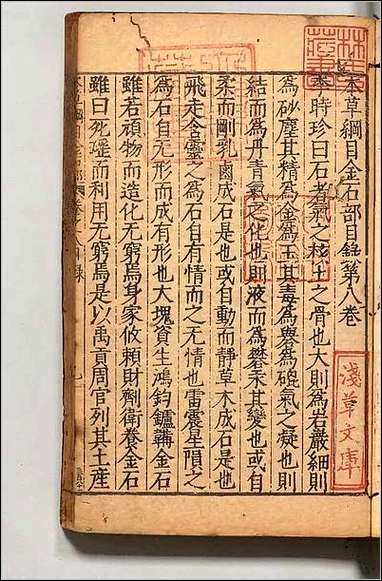 本草綱目金石部目錄第八卷
李時珍曰石者氣之核土之骨也大則為岩巖細則
為砂塵其精為金為玉其毒為礜為砒氣之凝也則
結而為丹青氣之化也則液而為礬汞其變也或自
柔而剛乳鹵成石是也或自動而靜草木成石是也
飛走含靈之為石自有情而之無情也雷震星隕之
為石自无形而成有形也大塊資生鴻鈞鑪鞴金石
雖若頑物而造化无窮焉身家攸賴財劑衛養金石
雖曰死瑤而利用无窮焉是以禹貢周官列其土產
淺草文庫